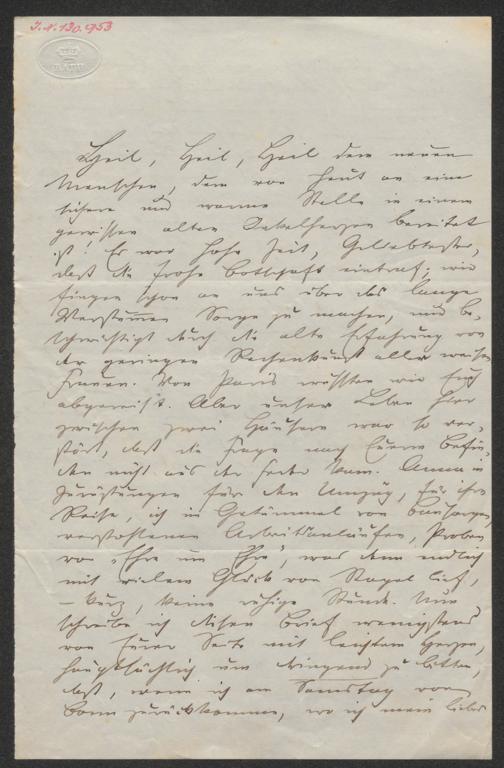 J.N. 130.953
BATH
Heil, Heil, Heil dem neuen
Menschen, dem von heut an eine
sichere und warme Stelle in einem
gewissen alten Onkelherzen bereitet
ist! Es war hohe Zeit, Geliebtester,
daß die frohe Botschaft eintraf; wir
fingen schon an uns über das lange
Verstummen Sorge zu machen, nur be-
schwichtigt durch die alte Erfahrung von
der geringen Rechenkunst aller weisen
Frauen. Von Paris wußten wir Euch
abgereis't. Aber unser Leben hier
zwischen zwei Häusern war so ver-
stört, daß die Frage nach Eurem Befin-
den nicht aus der Feder kam. Anna in
Zurüstungen für den Umzug, für ihre
Reise, ich in Getümmel von Bausorgen,
verstohlenen Arbeitsanläufen, Proben
von "Ehre um Ehre", was denn endlich
mit vielem Glück von Stapel lief,
– kurz, keine ruhige Stunde. Nun
schreibe ich diesen Brief wenigstens
von Eurer Seite mit leichtem Herzen,
hauptsächlich um dringend zu bitten,
daß, wenn ich am Samstag von
Bonn zurückkomme, wo ich mein liebes